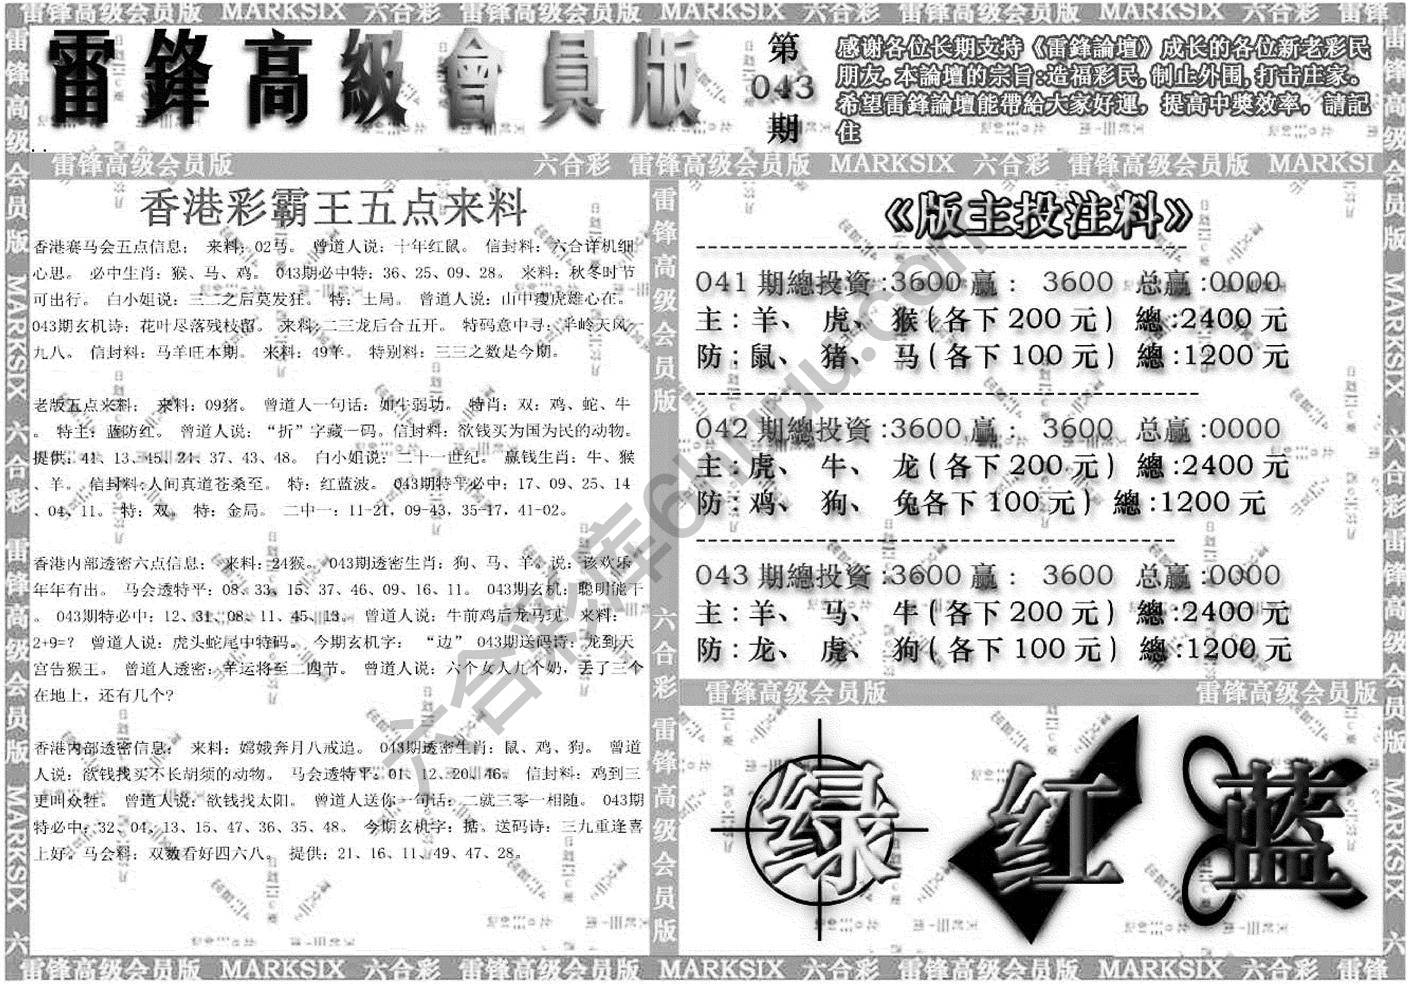 雷锋高级会员版 MARKSIX 六合彩 雷锋高级会员版 MARKSIX 六合彩 雷锋高级会员版 MARKSIX 六合彩 雷锋
雷鋒高級會員版
第
043
期
感谢各位长期支持《雷鋒論壇》成长的各位新老彩民
朋友.本論壇的宗旨:造福彩民,制止外围,打击庄家。
希望雷鋒論壇能帶給大家好運，提高中獎效率，請記
住
雷锋高级会员版 六合彩 雷锋高级会员版 MARKSIX 六合彩 雷锋高级会员版 MARKSI
香港彩霸王五点来料
香港赛马会五点信息： 来料：02马。 曾道人说：十年红鼠。 信封料：六合详机细
心思。 必中生肖：猴、马、鸡。 043期必中特：36、25、09、28。 来料：秋冬时节
可出行。 白小姐说：三二之后莫发狂。 特：土局。 曾道人说：山中瘦虎雄心在。
043期玄机诗：花叶尽落残枝留。 来料:二三龙后合五开。 特码意中寻：半岭天风
九八。 信封料：马羊旺本期。 来料：49羊。 特别料：三三之数是今期。
老版五点来料： 来料：09猪。 曾道人一句话：如牛弱功。 特肖：双：鸡、蛇、牛
。 特主：蓝防红。 曾道人说：“折”字藏一码。信封料：欲钱买为国为民的动物。
提供：41、13、45、24、37、43、48。 白小姐说：二十一世纪。 赢钱生肖：牛、猴
、羊。 信封料:人间真道苍桑至。 特：红蓝波。 043期特平必中：17、09、25、14
、04、11。 特：双。 特：金局。 二中一：11-21，09-43，35-17，41-02。
香港内部透密六点信息： 来料：24猴。 043期透密生肖：狗、马、羊。说：该欢乐
年年有出。 马会透特平：08、33、15、37、46、09、16、11。 043期玄机：聪明能干
。 043期特必中：12、31、08、11、45、13。 曾道人说：牛前鸡后龙马现。来料：
2+9=？ 曾道人说：虎头蛇尾中特码。 今期玄机字： “边” 043期送码诗：龙到天
宫告猴王。 曾道人透密：羊运将至二四节。 曾道人说：六个女人九个奶，丢了三个
在地上，还有几个?
香港内部透密信息： 来料：嫦娥奔月八戒追。 043期透密生肖：鼠、鸡、狗。 曾道
人说：欲钱找买不长胡须的动物。 马会透特平。01、12、20、46。 信封料：鸡到三
更叫众牲。 曾道人说：欲钱找太阳。 曾道人送你一句话：二就三零一相随。 043期
特必中：32、04、13、15、47、36、35、48。 今期玄机字：掂。送码诗：三九重逢喜
上好。马会料：双数看好四六八。 提供：21、16、11、49、47、28。
《版主投注料》
041 期總投資:3600 赢： 3600 总赢:0000
主：羊、 虎、 猴(各下 200 元) 總:2400 元
防：鼠、 猪、 马(各下 100 元) 總:1200 元
042 期總投資:3600 赢： 3600 总赢:0000
主：虎、 牛、 龙(各下 200 元) 總:2400 元
防：鸡、 狗、 兔各下 100 元) 總:1200 元
043 期總投資:3600 赢： 3600 总赢:0000
主：羊、 马、 牛(各下 200 元) 總:2400 元
防：龙、 虎、 狗(各下 100 元) 總:1200 元
雷锋高级会员版 雷锋高级会员版
绿 红 蓝
雷锋高级会员版 MARKSIX 六合彩 雷锋高级会员版 MARKSIX 六合彩 雷锋高级会员版 MARKSIX 六合彩 雷锋
雷锋高级会员版 MARKSIX 六合彩 雷锋高级会员版 MARKSIX 六
雷锋高级会员版 六合彩 雷锋高级会员版
雷锋高级会员版 MARKSIX 六合彩 雷锋高级会员版 MARKSIX 六